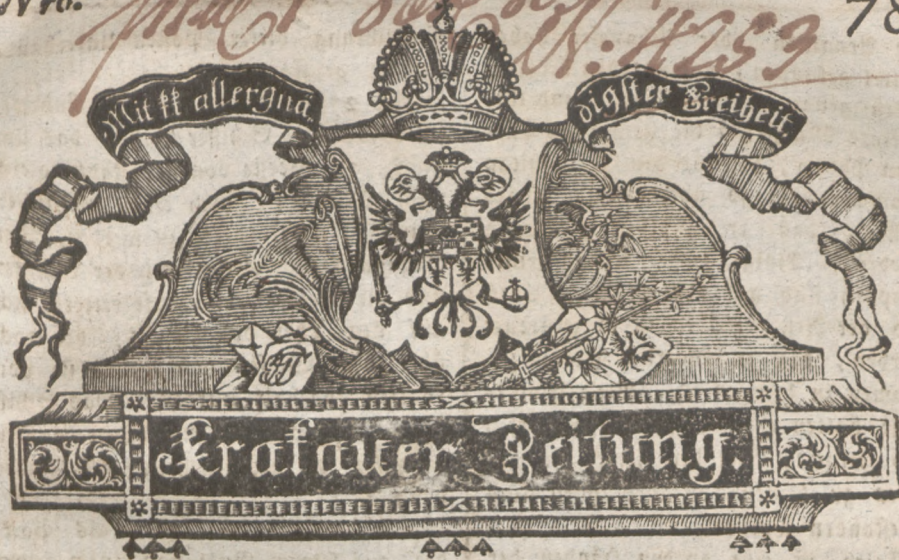 Nro. 78
N: 4253
Mit kk allergnä
digster Freiheit.
Krakauer Zeitung.